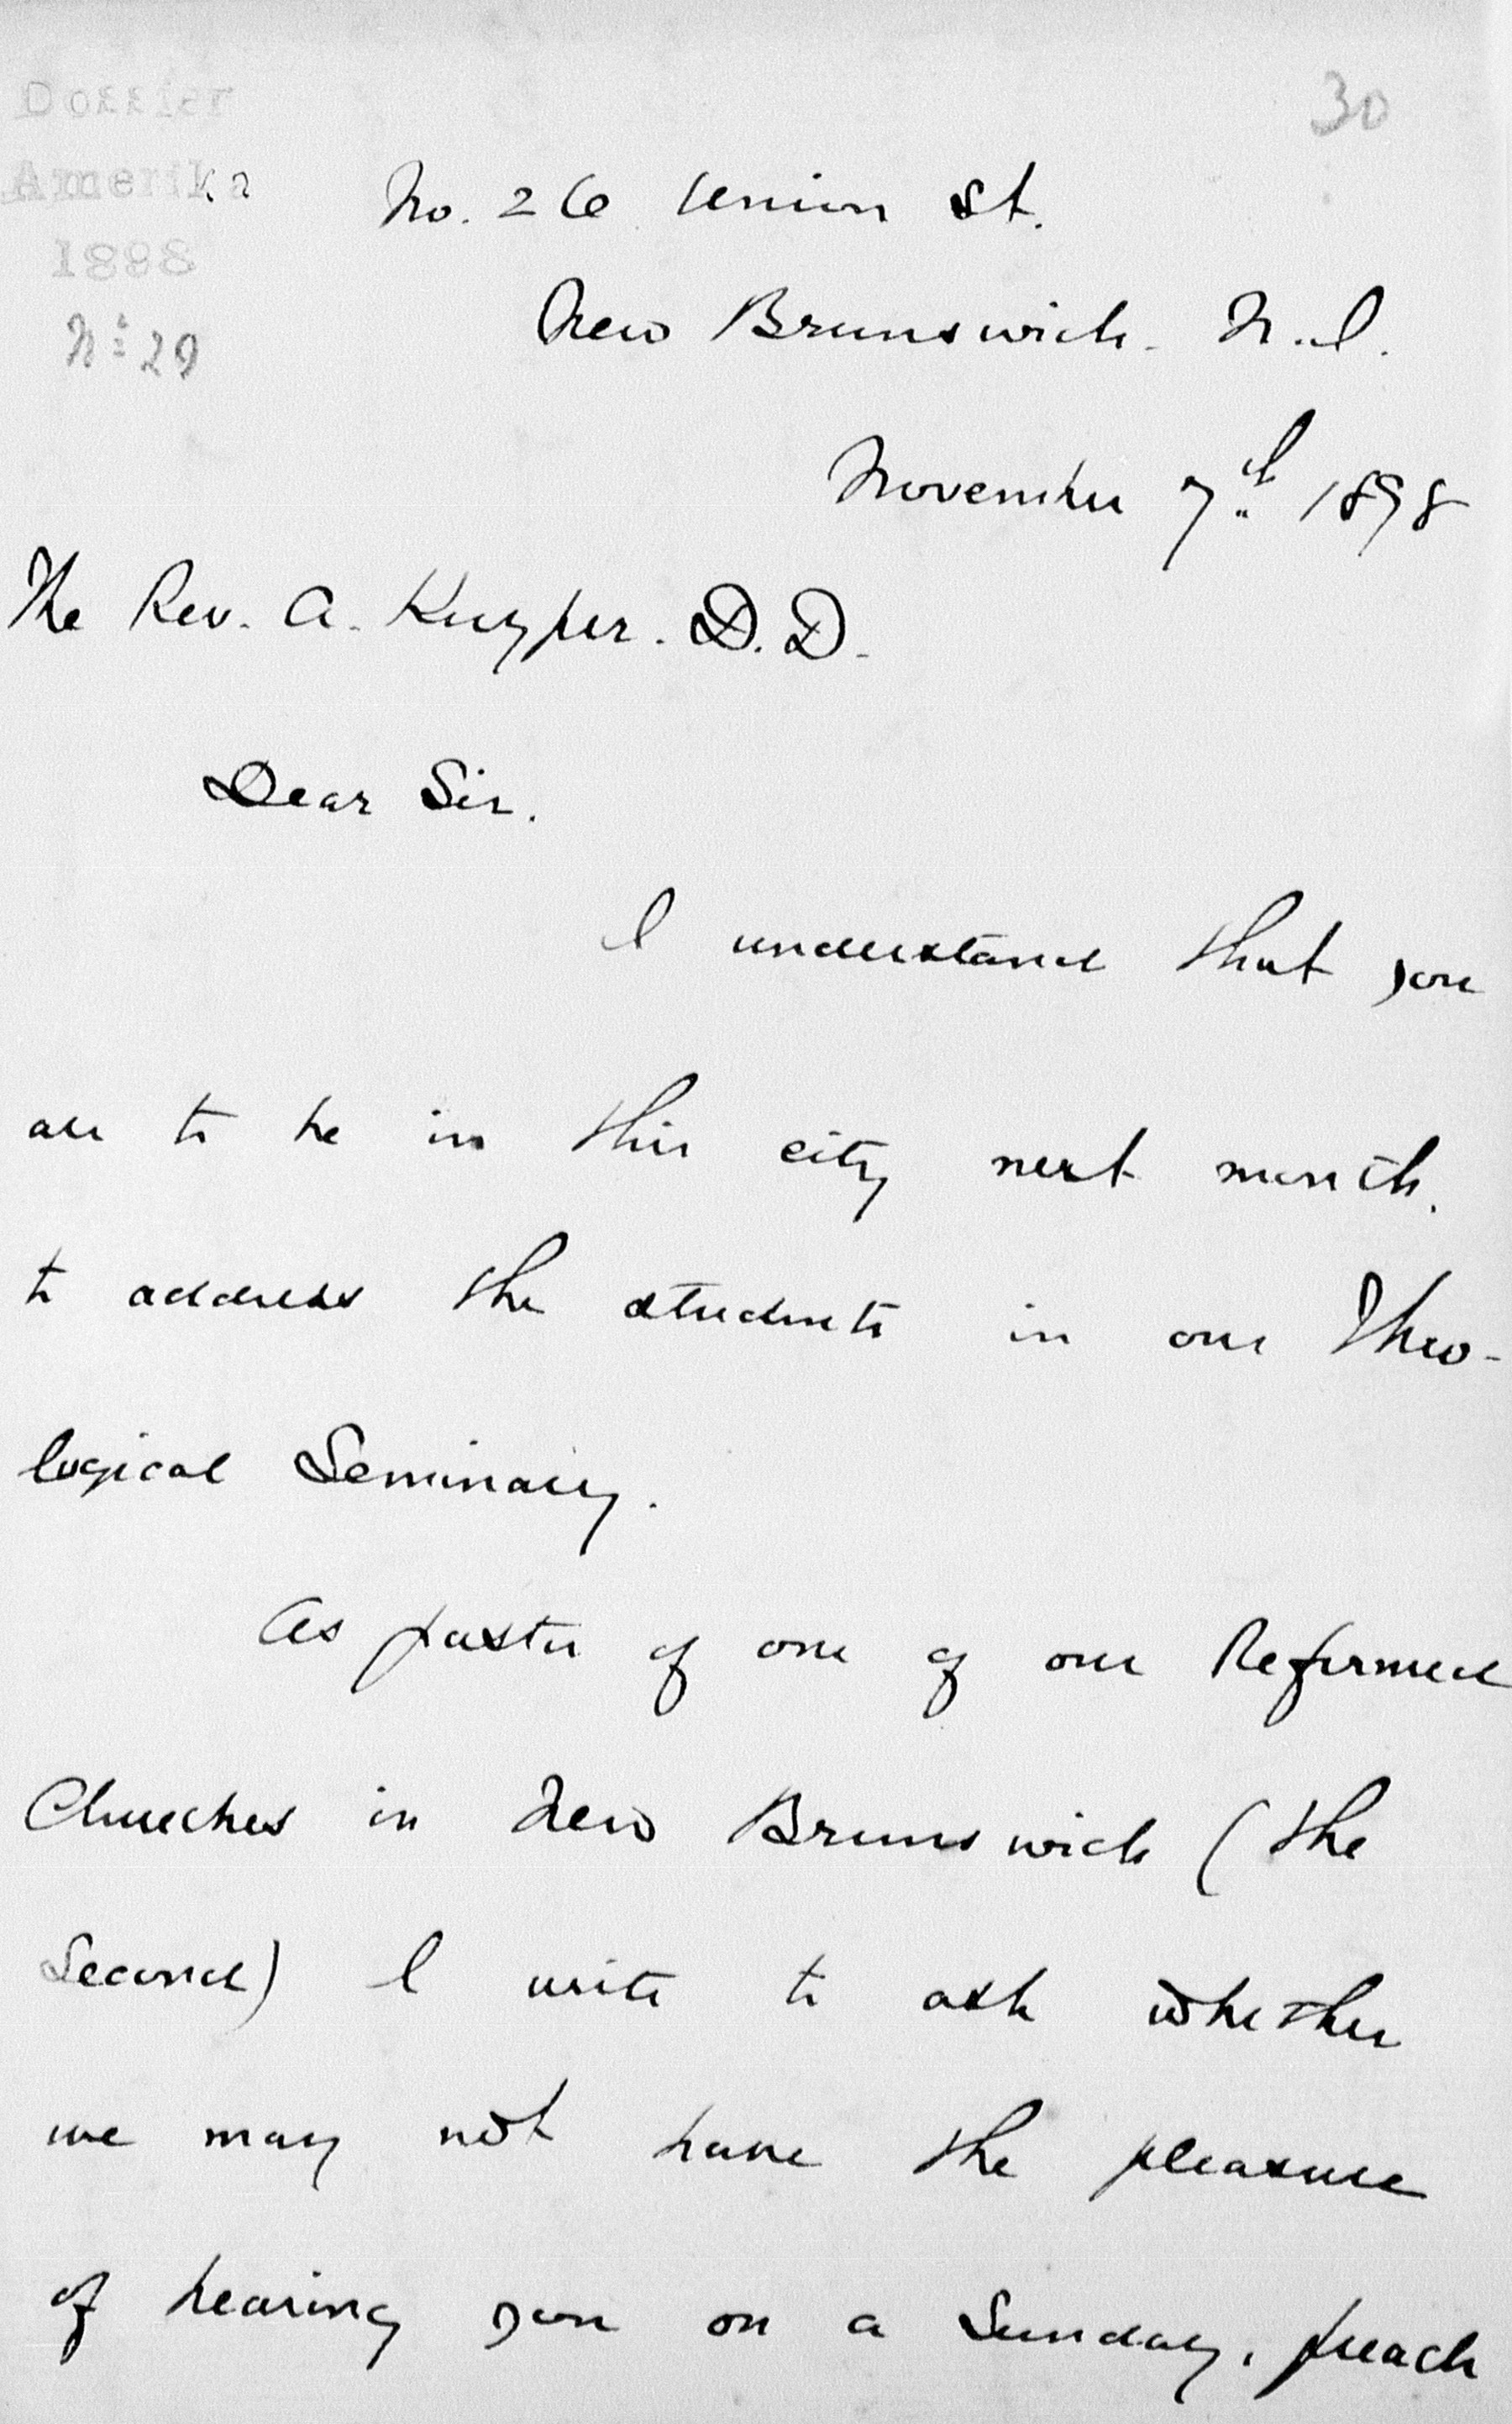 Dossier
30
Amerika
No. 26 Union St.
1898
New Brunswick. N.J.
No: 29
November 7th 1898
The Rev. A. Kuyper. D.D.
Dear Sir.
I understand that you
are to be in this city next month,
to address the students in our Theo-
logical Seminary.
As pastor of one of our Reformed
Churches in New Brunswick (the
Second) I write to ask whether
we may not have the pleasure
of hearing you on a Sunday, preach